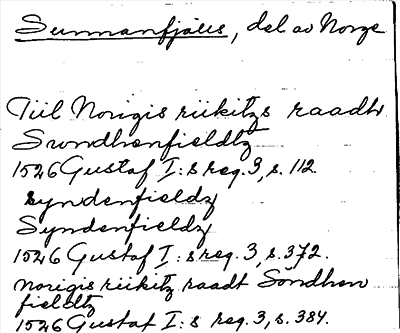 Sunnanfjälls, del av Norge
Tiil Norigis riikitzs raadh
Swndhenfieldtz
1526 Gustaf I:s reg. 3, s. 112.
syndenfieldz
Syndenfieldz
1526 Gustaf I:s reg. 3, s. 372.
norigis riikitz raadt Söndhen
fieldtz
1526 Gustaf I:s reg. 3, s. 384.